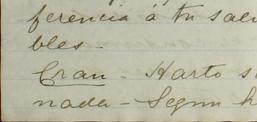 ferencia á tu sa
bles.
Eran - Harto s
nada - Segun h